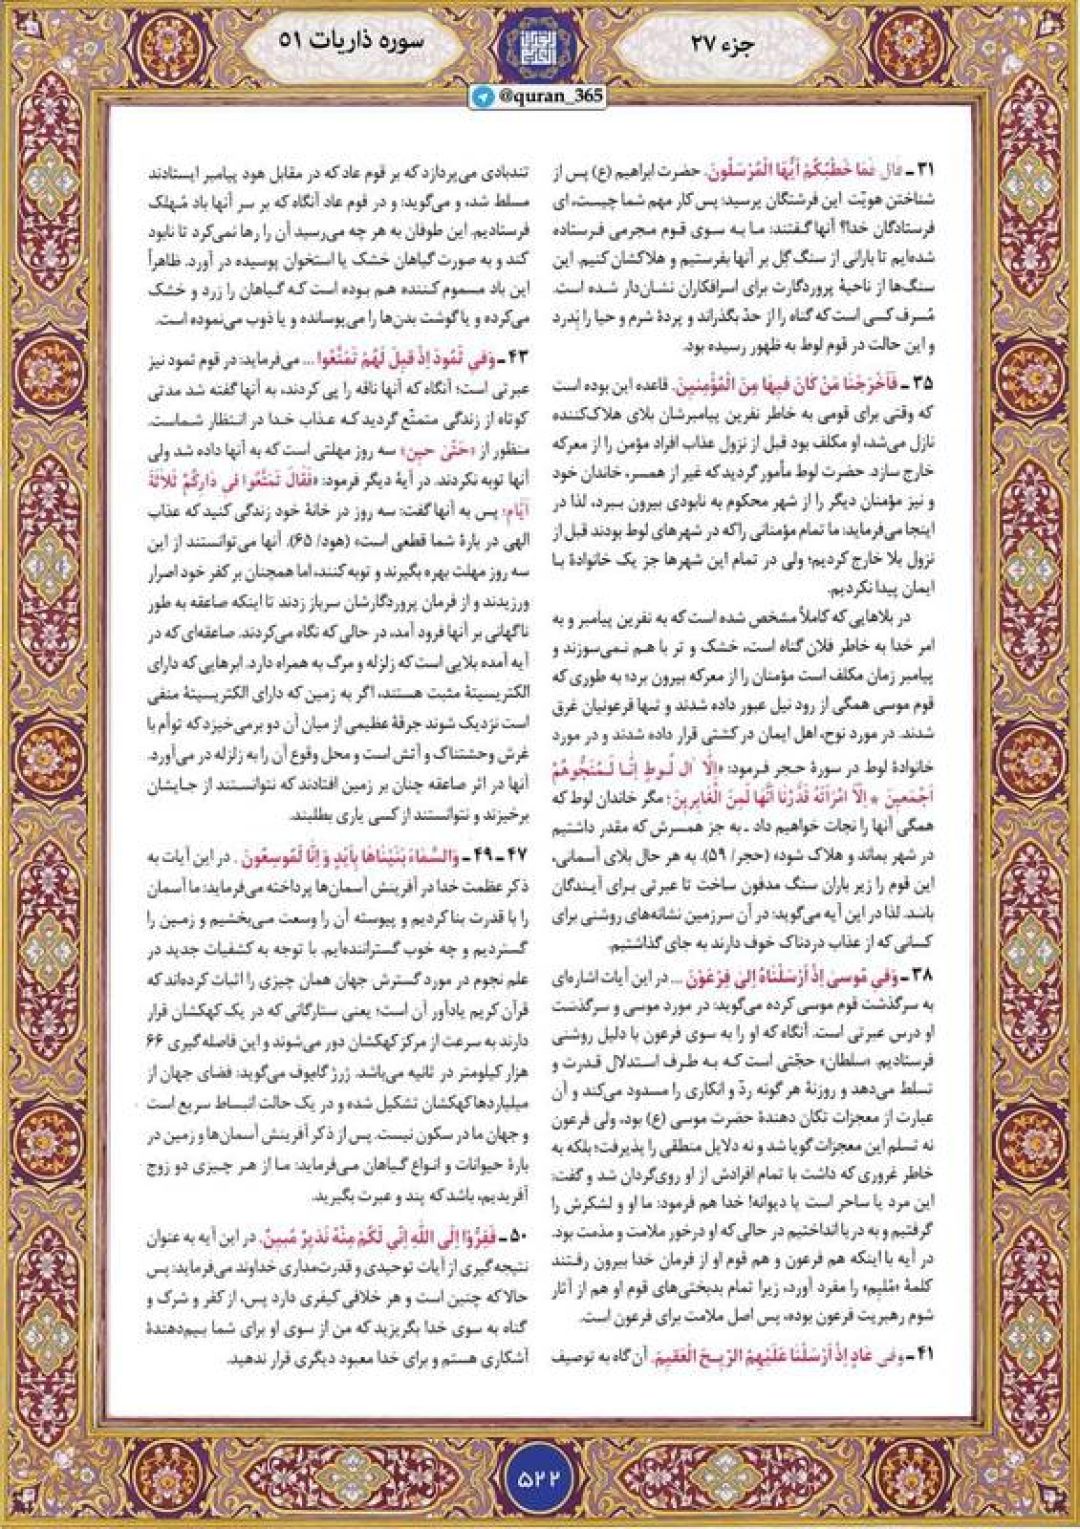 جزء ۲۷
سوره ذاریات ۵۱
@quran_365
۳۱ ـ قالَ فَما خَطْبُكُمْ اَيُّهَا الْمُرْسَلُونَ. حضرت ابراهیم (ع) پس از
شناختن هویّت این فرشتگان پرسید: پس کار مهم شما چیست، ای
فرستادگان خدا؟ آنها گفتند: ما به سوی قوم مجرمی فرستاده
شده‌ایم تا بارانی از سنگ گِل بر آنها بفرستیم و هلاکشان کنیم. این
سنگ‌ها از ناحیهٔ پروردگارت برای اسرافکاران نشان‌دار شده است.
مُسرف کسی است که گناه را از حدّ بگذراند و پردهٔ شرم و حیا را بِدرد
و این حالت در قوم لوط به ظهور رسیده بود.
۳۵ ـ فَاَخْرَجْنا مَنْ كانَ فيها مِنَ الْمُؤْمِنينَ. قاعده این بوده است
که وقتی برای قومی به خاطر نفرین پیامبرشان بلای هلاک‌کننده
نازل می‌شد، او مکلف بود قبل از نزول عذاب افراد مؤمن را از معرکه
خارج سازد. حضرت لوط مأمور گردید که غیر از همسر، خاندان خود
و نیز مؤمنان دیگر را از شهر محکوم به نابودی بیرون ببرد، لذا در
اینجا می‌فرماید: ما تمام مؤمنانی را که در شهرهای لوط بودند قبل از
نزول بلا خارج کردیم؛ ولی در تمام این شهرها جز یک خانوادهٔ با
ایمان پیدا نکردیم.
در بلاهایی که کاملاً مشخص شده است که به نفرین پیامبر و به
امر خدا به خاطر فلان گناه است، خشک و تر با هم نمی‌سوزند و
پیامبر زمان مکلف است مؤمنان را از معرکه بیرون برد؛ به طوری که
قوم موسی همگی از رود نیل عبور داده شدند و تنها فرعونیان غرق
شدند. در مورد نوح، اهل ایمان در کشتی قرار داده شدند و در مورد
خانوادهٔ لوط در سورهٔ حجر فرمود: «اِلّا آلَ لُوطٍ اِنّا لَمُنَجُّوهُمْ
اَجْمَعينَ * اِلَّا امْرَاَتَهُ قَدَّرْنا اِنَّها لَمِنَ الْغابِرينَ؛ مگر خاندان لوط که
همگی آنها را نجات خواهیم داد ـ به جز همسرش که مقدر داشتیم
در شهر بماند و هلاک شود» (حجر/ ۵۹). به هر حال بلای آسمانی،
این قوم را زیر باران سنگ مدفون ساخت تا عبرتی برای آیندگان
باشد. لذا در این آیه می‌گوید: در آن سرزمین نشانه‌های روشنی برای
کسانی که از عذاب دردناک خوف دارند به جای گذاشتیم.
۳۸ ـ وَفي مُوسىٰ اِذْ اَرْسَلْناهُ اِلىٰ فِرْعَوْنَ ... در این آیات اشاره‌ای
به سرگذشت قوم موسی کرده می‌گوید: در مورد موسی و سرگذشت
او درس عبرتی است. آنگاه که او را به سوی فرعون با دلیل روشنی
فرستادیم. «سلطان» حجّتی است که به طرف استدلال قدرت و
تسلط می‌دهد و روزنهٔ هر گونه ردّ و انکاری را مسدود می‌کند و آن
عبارت از معجزات تکان دهندهٔ حضرت موسی (ع) بود، ولی فرعون
نه تسلم این معجزات گویا شد و نه دلایل منطقی را پذیرفت؛ بلکه به
خاطر غروری که داشت با تمام افرادش از او روی‌گردان شد و گفت:
این مرد یا ساحر است یا دیوانه! خدا هم فرمود: ما او و لشکرش را
گرفتیم و به دریا انداختیم در حالی که او درخور ملامت و مذمت بود.
در آیه با اینکه هم فرعون و هم قوم او از فرمان خدا بیرون رفتند
کلمهٔ «مُلیم» را مفرد آورد، زیرا تمام بدبختی‌های قوم او هم از آثار
شوم رهبریت فرعون بوده، پس اصل ملامت برای فرعون است.
۴۱ ـ وَفي عادٍ اِذْ اَرْسَلْنا عَلَيْهِمُ الرّيحَ الْعَقيمَ. آن گاه به توصیف
تندبادی می‌پردازد که بر قوم عاد که در مقابل هود پیامبر ایستادند
مسلط شد، و می‌گوید: و در قوم عاد آنگاه که بر سر آنها باد مُهلک
فرستادیم. این طوفان به هر چه می‌رسید آن را رها نمی‌کرد تا نابود
کند و به صورت گیاهان خشک یا استخوان پوسیده در آورد. ظاهراً
این باد مسموم کننده هم بوده است که گیاهان را زرد و خشک
می‌کرده و یا گوشت بدن‌ها را می‌پوسانده و یا ذوب می‌نموده است.
۴۳ ـ وَفي ثَمُودَ اِذْ قيلَ لَهُمْ تَمَتَّعُوا ... می‌فرماید: در قوم ثمود نیز
عبرتی است؛ آنگاه که آنها ناقه را پی کردند، به آنها گفته شد مدتی
کوتاه از زندگی متمتّع گردید که عذاب خدا در انتظار شماست.
منظور از «حَتّىٰ حينٍ» سه روز مهلتی است که به آنها داده شد ولی
آنها توبه نکردند. در آیهٔ دیگر فرمود: «فَقالَ تَمَتَّعُوا في دارِكُمْ ثَلاثَةَ
اَيّامٍ؛ پس به آنها گفت: سه روز در خانهٔ خود زندگی کنید که عذاب
الهی در بارهٔ شما قطعی است» (هود/ ۶۵). آنها می‌توانستند از این
سه روز مهلت بهره بگیرند و توبه کنند، اما همچنان بر کفر خود اصرار
ورزیدند و از فرمان پروردگارشان سرباز زدند تا اینکه صاعقه به طور
ناگهانی بر آنها فرود آمد، در حالی که نگاه می‌کردند. صاعقه‌ای که در
آیه آمده بلایی است که زلزله و مرگ به همراه دارد. ابرهایی که دارای
الکتریسیتهٔ مثبت هستند، اگر به زمین که دارای الکتریسیتهٔ منفی
است نزدیک شوند جرقهٔ عظیمی از میان آن دو برمی‌خیزد که توأم با
غرش وحشتناک و آتش است و محل وقوع آن را به زلزله در می‌آورد.
آنها در اثر صاعقه چنان بر زمین افتادند که نتوانستند از جایشان
برخیزند و نتوانستند از کسی یاری بطلبند.
۴۷ ـ ۴۹ ـ وَالسَّماءَ بَنَيْناها بِاَيْدٍ وَ اِنّا لَمُوسِعُونَ . در این آیات به
ذکر عظمت خدا در آفرینش آسمان‌ها پرداخته می‌فرماید: ما آسمان
را با قدرت بنا کردیم و پیوسته آن را وسعت می‌بخشیم و زمین را
گستردیم و چه خوب گستراننده‌ایم. با توجه به کشفیات جدید در
علم نجوم در مورد گسترش جهان همان چیزی را اثبات کرده‌اند که
قرآن کریم یادآور آن است؛ یعنی ستارگانی که در یک کهکشان قرار
دارند به سرعت از مرکز کهکشان دور می‌شوند و این فاصله‌گیری ۶۶
هزار کیلومتر در ثانیه می‌باشد. ژرژ گاموف می‌گوید: فضای جهان از
میلیاردها کهکشان تشکیل شده و در یک حالت انبساط سریع است
و جهان ما در سکون نیست. پس از ذکر آفرینش آسمان‌ها و زمین در
بارهٔ حیوانات و انواع گیاهان می‌فرماید: ما از هر چیزی دو زوج
آفریدیم، باشد که پند و عبرت بگیرید.
۵۰ ـ فَفِرُّوا اِلَى اللّٰهِ اِنّي لَكُمْ مِنْهُ نَذيرٌ مُبينٌ. در این آیه به عنوان
نتیجه‌گیری از آیات توحیدی و قدرت‌مداری خداوند می‌فرماید: پس
حالا که چنین است و هر خلافی کیفری دارد پس، از کفر و شرک و
گناه به سوی خدا بگریزید که من از سوی او برای شما بیم‌دهندهٔ
آشکاری هستم و برای خدا معبود دیگری قرار ندهید.
۵۲۲